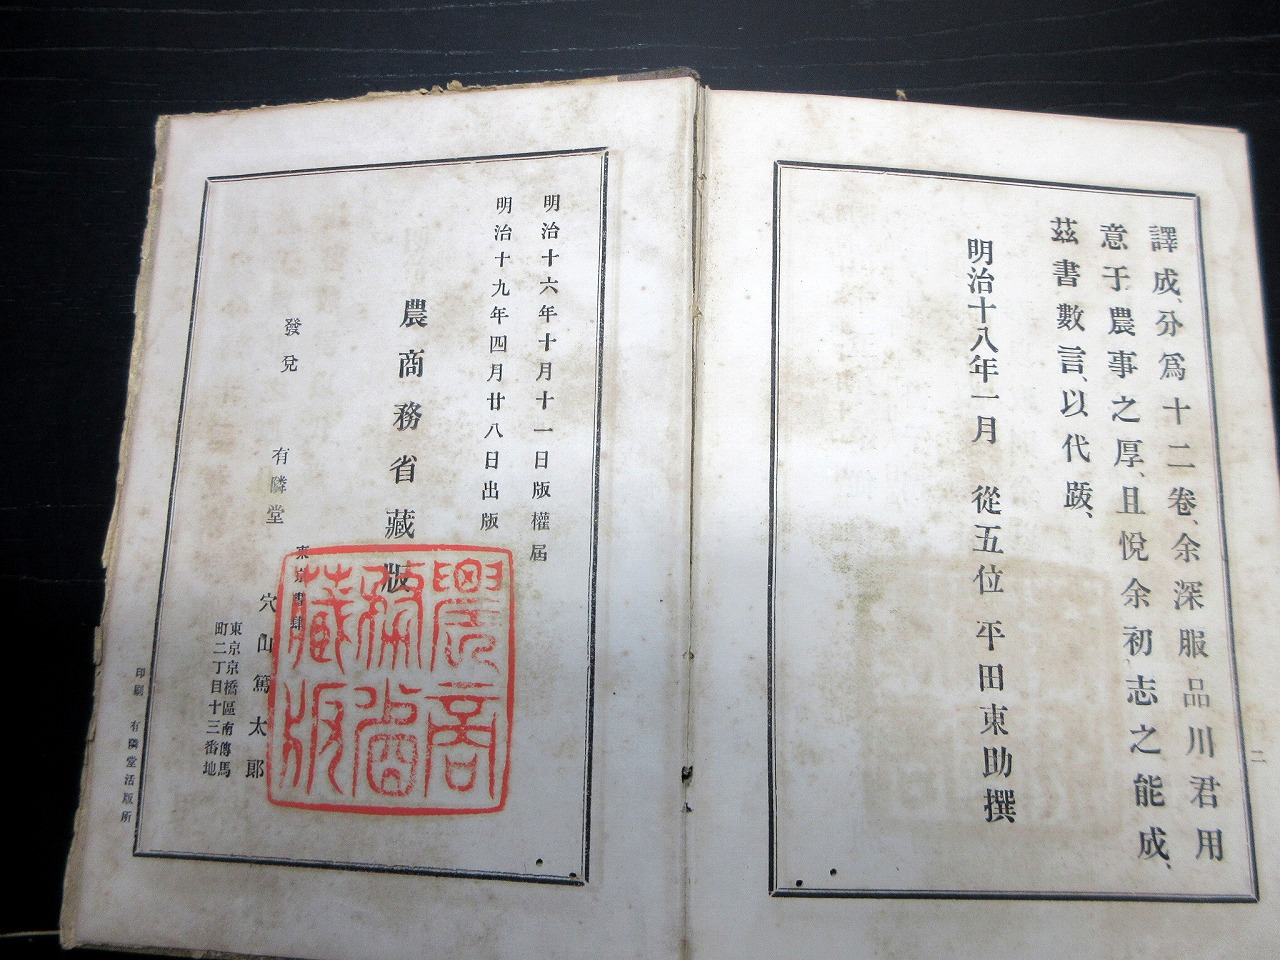 譯成、分爲十二卷、余深服品川君用
意于農事之厚、且悅余初志之能成、
茲書數言、以代跋、
明治十八年一月 從五位 平田東助撰
二
明治十六年十月十一日版權屆
明治十九年四月廿八日出版
農商務省藏版
農商務省藏版
發兌
東京書肆
有隣堂 穴山篤太郎
東京京橋區南傳馬
町二丁目十三番地
印刷 有隣堂活版所